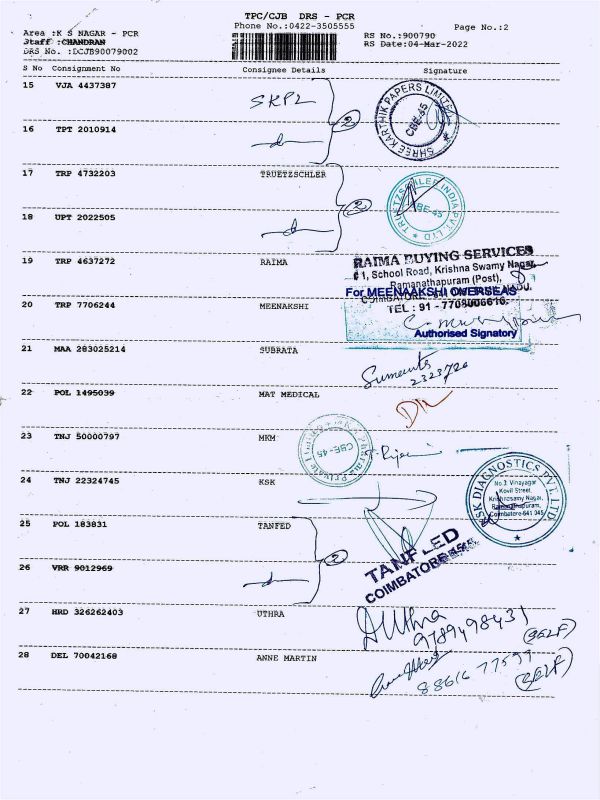 TPC/CJB DRS - PCR
Phone No.:0422-3505555
Page No.:2
Area :K S NAGAR - PCR
Staff :CHANDRAN
DRS No. :DCJB90079002
RS No.:900790
RS Date:04-Mar-2022
S No Consignment No Consignee Details Signature
15 VJA 4437387 SKPL
SHREE KARTHIK PAPERS LIMITED
CBE-45
2
16 TPT 2010914
17 TRP 4732203 TRUETZSCHLER
TRUETZSCHLER INDIA PVT. LTD
CBE-45
2
18 UPT 2022505
19 TRP 4637272 RAIMA
RAIMA BUYING SERVICES
# 1, School Road, Krishna Swamy Nagar,
Ramanathapuram (Post),
For MEENAAKSHI OVERSEAS
TEL : 91 -
20 TRP 7706244 MEENAKSHI
Authorised Signatory
21 MAA 283025214 SUBRATA
22 POL 1495039 MAT MEDICAL
23 TNJ 50000797 MKM
CBE-45
24 TNJ 22324745 KSK
SK DIAGNOSTICS PVT. LTD
No.3, Vinayagar
Kovil Street,
Krishnasamy Nagar,
Ramanathapuram,
Coimbatore-641 045
25 POL 183831 TANFED
2
TANFED
COIMBATORE
26 VRR 9012969
27 HRD 326262403 UTHRA
Uthra
9789498431
(SELF)
28 DEL 70042168 ANNE MARTIN
(SELF)